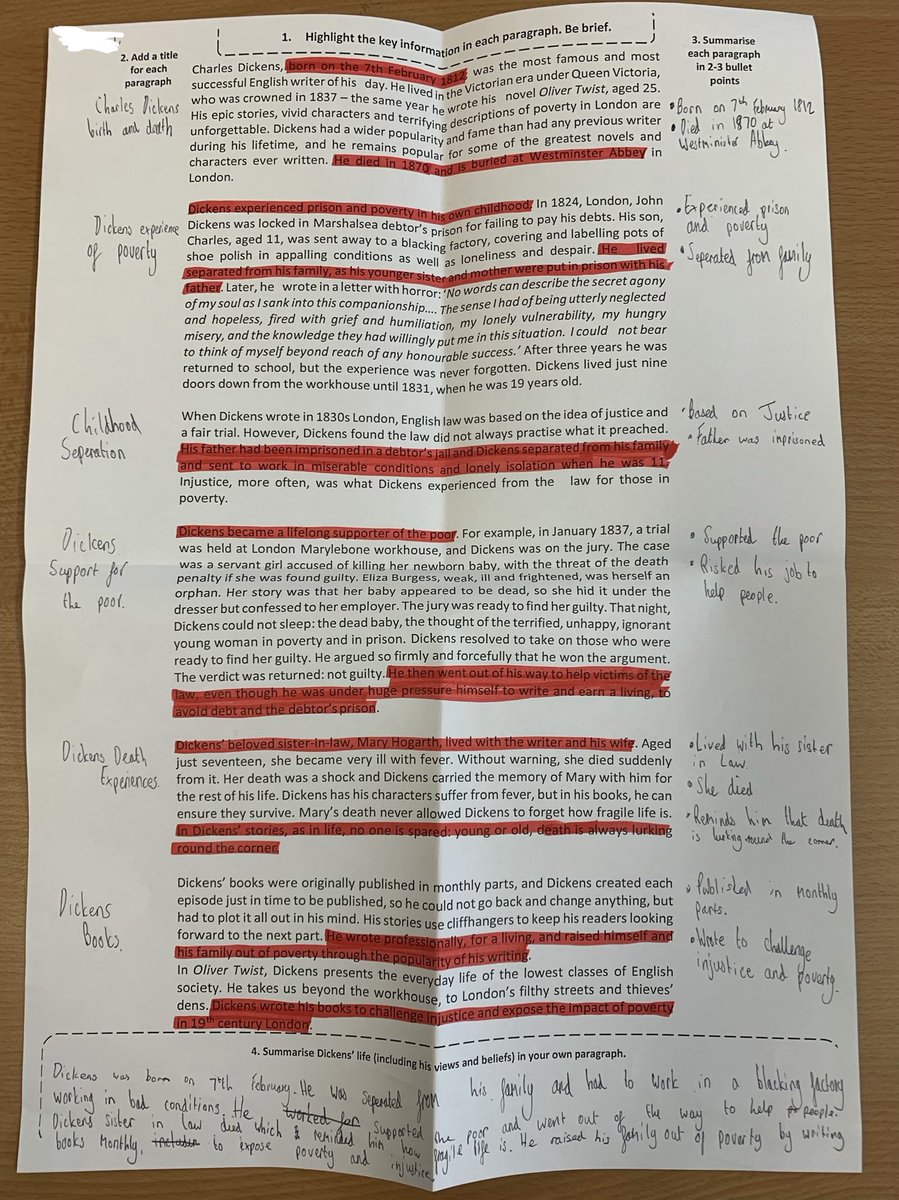 1. Highlight the key information in each paragraph. Be brief.
2. Add a title
for each
paragraph
3. Summarise
each paragraph
in 2-3 bullet
points
Charles Dickens
birth and death
Charles Dickens, born on the 7th February 1812, was the most famous and most
successful English writer of his day. He lived in the Victorian era under Queen Victoria,
who was crowned in 1837 – the same year he wrote his novel Oliver Twist, aged 25.
His epic stories, vivid characters and terrifying descriptions of poverty in London are
unforgettable. Dickens had a wider popularity and fame than had any previous writer
during his lifetime, and he remains popular for some of the greatest novels and
characters ever written. He died in 1870 and is buried at Westminster Abbey in
London.
• Born on 7th February 1812
• Died in 1870 at
Westminister Abbey.
Dickens experience
of poverty
Dickens experienced prison and poverty in his own childhood. In 1824, London, John
Dickens was locked in Marshalsea debtor's prison for failing to pay his debts. His son,
Charles, aged 11, was sent away to a blacking factory, covering and labelling pots of
shoe polish in appalling conditions as well as loneliness and despair. He lived
separated from his family, as his younger sister and mother were put in prison with his
father. Later, he wrote in a letter with horror: 'No words can describe the secret agony
of my soul as I sank into this companionship.... The sense I had of being utterly neglected
and hopeless, fired with grief and humiliation, my lonely vulnerability, my hungry
misery, and the knowledge they had willingly put me in this situation. I could not bear
to think of myself beyond reach of any honourable success.' After three years he was
returned to school, but the experience was never forgotten. Dickens lived just nine
doors down from the workhouse until 1831, when he was 19 years old.
• Experienced prison
and poverty
• Seperated from family
Childhood
Seperation
When Dickens wrote in 1830s London, English law was based on the idea of justice and
a fair trial. However, Dickens found the law did not always practise what it preached.
His father had been imprisoned in a debtor's jail and Dickens separated from his family
and sent to work in miserable conditions and lonely isolation when he was 11.
Injustice, more often, was what Dickens experienced from the law for those in
poverty.
• Based on Justice
• Father was inprisoned
Dickens
Support for
the poor.
Dickens became a lifelong supporter of the poor. For example, in January 1837, a trial
was held at London Marylebone workhouse, and Dickens was on the jury. The case
was a servant girl accused of killing her newborn baby, with the threat of the death
penalty if she was found guilty. Eliza Burgess, weak, ill and frightened, was herself an
orphan. Her story was that her baby appeared to be dead, so she hid it under the
dresser but confessed to her employer. The jury was ready to find her guilty. That night,
Dickens could not sleep: the dead baby, the thought of the terrified, unhappy, ignorant
young woman in poverty and in prison. Dickens resolved to take on those who were
ready to find her guilty. He argued so firmly and forcefully that he won the argument.
The verdict was returned: not guilty. He then went out of his way to help victims of the
law, even though he was under huge pressure himself to write and earn a living, to
avoid debt and the debtor's prison.
• Supported the poor
• Risked his job to
help people.
Dickens Death
Experiences.
Dickens' beloved sister-in-law, Mary Hogarth, lived with the writer and his wife. Aged
just seventeen, she became very ill with fever. Without warning, she died suddenly
from it. Her death was a shock and Dickens carried the memory of Mary with him for
the rest of his life. Dickens has his characters suffer from fever, but in his books, he can
ensure they survive. Mary's death never allowed Dickens to forget how fragile life is.
In Dickens' stories, as in life, no one is spared: young or old, death is always lurking
round the corner.
• Lived with his sister
in law.
• She died
• Reminds him that death
is lurking round the corner.
Dickens
Books.
Dickens' books were originally published in monthly parts, and Dickens created each
episode just in time to be published, so he could not go back and change anything, but
had to plot it all out in his mind. His stories use cliffhangers to keep his readers looking
forward to the next part. He wrote professionally, for a living, and raised himself and
his family out of poverty through the popularity of his writing.
In Oliver Twist, Dickens presents the everyday life of the lowest classes of English
society. He takes us beyond the workhouse, to London's filthy streets and thieves'
dens. Dickens wrote his books to challenge injustice and expose the impact of poverty
in 19th century London.
• Published in Monthly
parts.
• Wrote to challenge
injustice and poverty.
4. Summarise Dickens' life (including his views and beliefs) in your own paragraph.
Dickens was born on 7th February. He was seperated from his family and had to work in a blacking factory
working in bad conditions. He worked for supported the poor and went out of the way to help people.
Dickens sister in law died which reminded him how fragile life is. He raised his family out of poverty by writing
books monthly. to expose poverty and injustice.